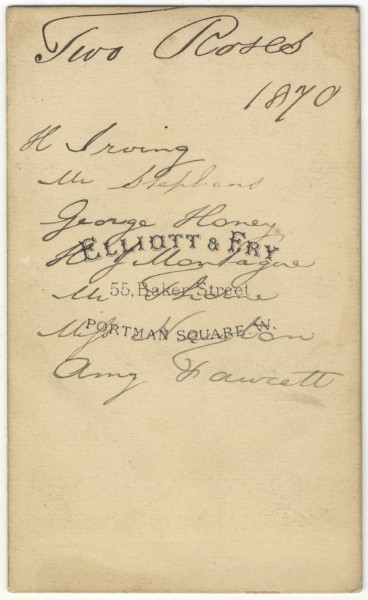 Two Roses
1870
H Irving
Mr Stephens
George Honey
ELLIOTT & FRY
H J Montague
55, Baker Street
Mr Thorne
PORTMAN SQUARE W.
Miss Newton
Amy Fawcett